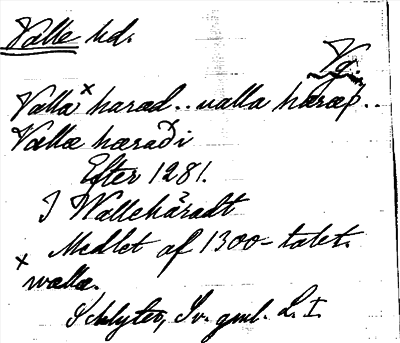 Valle hd.
Vg.
Valla x harad.. ualla hæræþ..
Vællæ hæraði
Efter 1281.
I Wallehäradt
Medlet af 1300-talet.
x wallæ.
Schlyter, Sv. gml. L. I.